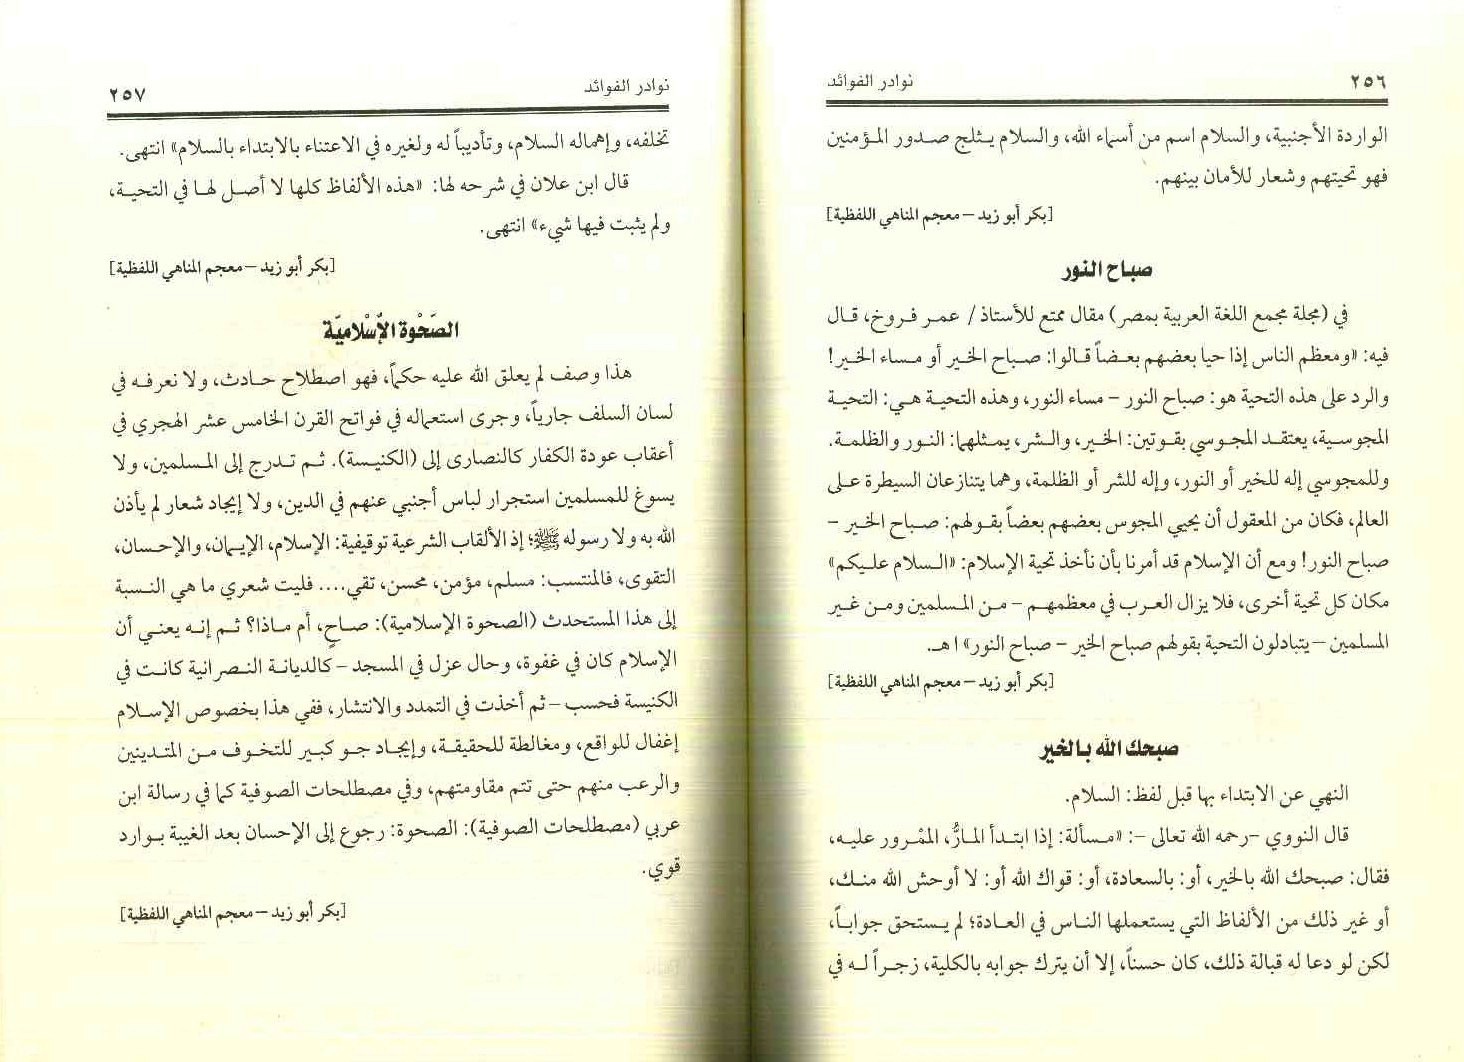 ٢٥٦ نوادر الفوائد
الواردة الأجنبية، والسلام اسم من أسماء الله، والسلام يثلج صدور المؤمنين
فهو تحيتهم وشعار للأمان بينهم.
[بكر أبو زيد – معجم المناهي اللفظية]
صباح النور
في (مجلة مجمع اللغة العربية بمصر) مقال ممتع للأستاذ/ عمر فروخ، قال
فيه: «ومعظم الناس إذا حيا بعضهم بعضاً قالوا: صباح الخير أو مساء الخير!
والرد على هذه التحية هو: صباح النور – مساء النور، وهذه التحية هي: التحية
المجوسية، يعتقد المجوسي بقوتين: الخير، والشر، يمثلهما: النور والظلمة.
وللمجوسي إله للخير أو النور، وإله للشر أو الظلمة، وهما يتنازعان السيطرة على
العالم، فكان من المعقول أن يحيي المجوس بعضهم بعضاً بقولهم: صباح الخير –
صباح النور! ومع أن الإسلام قد أمرنا بأن نأخذ تحية الإسلام: «السلام عليكم»
مكان كل تحية أخرى، فلا يزال العرب في معظمهم – من المسلمين ومن غير
المسلمين – يتبادلون التحية بقولهم صباح الخير – صباح النور» اهـ.
[بكر أبو زيد – معجم المناهي اللفظية]
صبحك الله بالخير
النهي عن الابتداء بها قبل لفظ: السلام.
قال النووي –رحمه الله تعالى –: «مسألة: إذا ابتدأ المارُّ، الممْرور عليه،
فقال: صبحك الله بالخير، أو: بالسعادة، أو: قواك الله أو: لا أوحش الله منك،
أو غير ذلك من الألفاظ التي يستعملها الناس في العادة؛ لم يستحق جواباً،
لكن لو دعا له قبالة ذلك، كان حسناً، إلا أن يترك جوابه بالكلية، زجراً له في
نوادر الفوائد ٢٥٧
تخلفه، وإهماله السلام، وتأديباً له ولغيره في الاعتناء بالابتداء بالسلام» انتهى.
قال ابن علان في شرحه لها: «هذه الألفاظ كلها لا أصل لها في التحية،
ولم يثبت فيها شيء» انتهى.
[بكر أبو زيد – معجم المناهي اللفظية]
الصَحْوة الإسْلاميّة
هذا وصف لم يعلق الله عليه حكماً، فهو اصطلاح حادث، ولا نعرفه في
لسان السلف جارياً، وجرى استعماله في فواتح القرن الخامس عشر الهجري في
أعقاب عودة الكفار كالنصارى إلى (الكنيسة). ثم تدرج إلى المسلمين، ولا
يسوغ للمسلمين استجرار لباس أجنبي عنهم في الدين، ولا إيجاد شعار لم يأذن
الله به ولا رسوله ﷺ؛ إذ الألقاب الشرعية توقيفية: الإسلام، الإيمان، والإحسان،
التقوى، فالمنتسب: مسلم، مؤمن، محسن، تقي.... فليت شعري ما هي النسبة
إلى هذا المستحدث (الصحوة الإسلامية): صاحٍ، أم ماذا؟ ثم إنه يعني أن
الإسلام كان في غفوة، وحال عزل في المسجد – كالديانة النصرانية كانت في
الكنيسة فحسب – ثم أخذت في التمدد والانتشار، ففي هذا بخصوص الإسلام
إغفال للواقع، ومغالطة للحقيقة، وإيجاد جو كبير للتخوف من المتدينين
والرعب منهم حتى تتم مقاومتهم، وفي مصطلحات الصوفية كما في رسالة ابن
عربي (مصطلحات الصوفية): الصحوة: رجوع إلى الإحسان بعد الغيبة بوارد
قوي.
[بكر أبو زيد – معجم المناهي اللفظية]